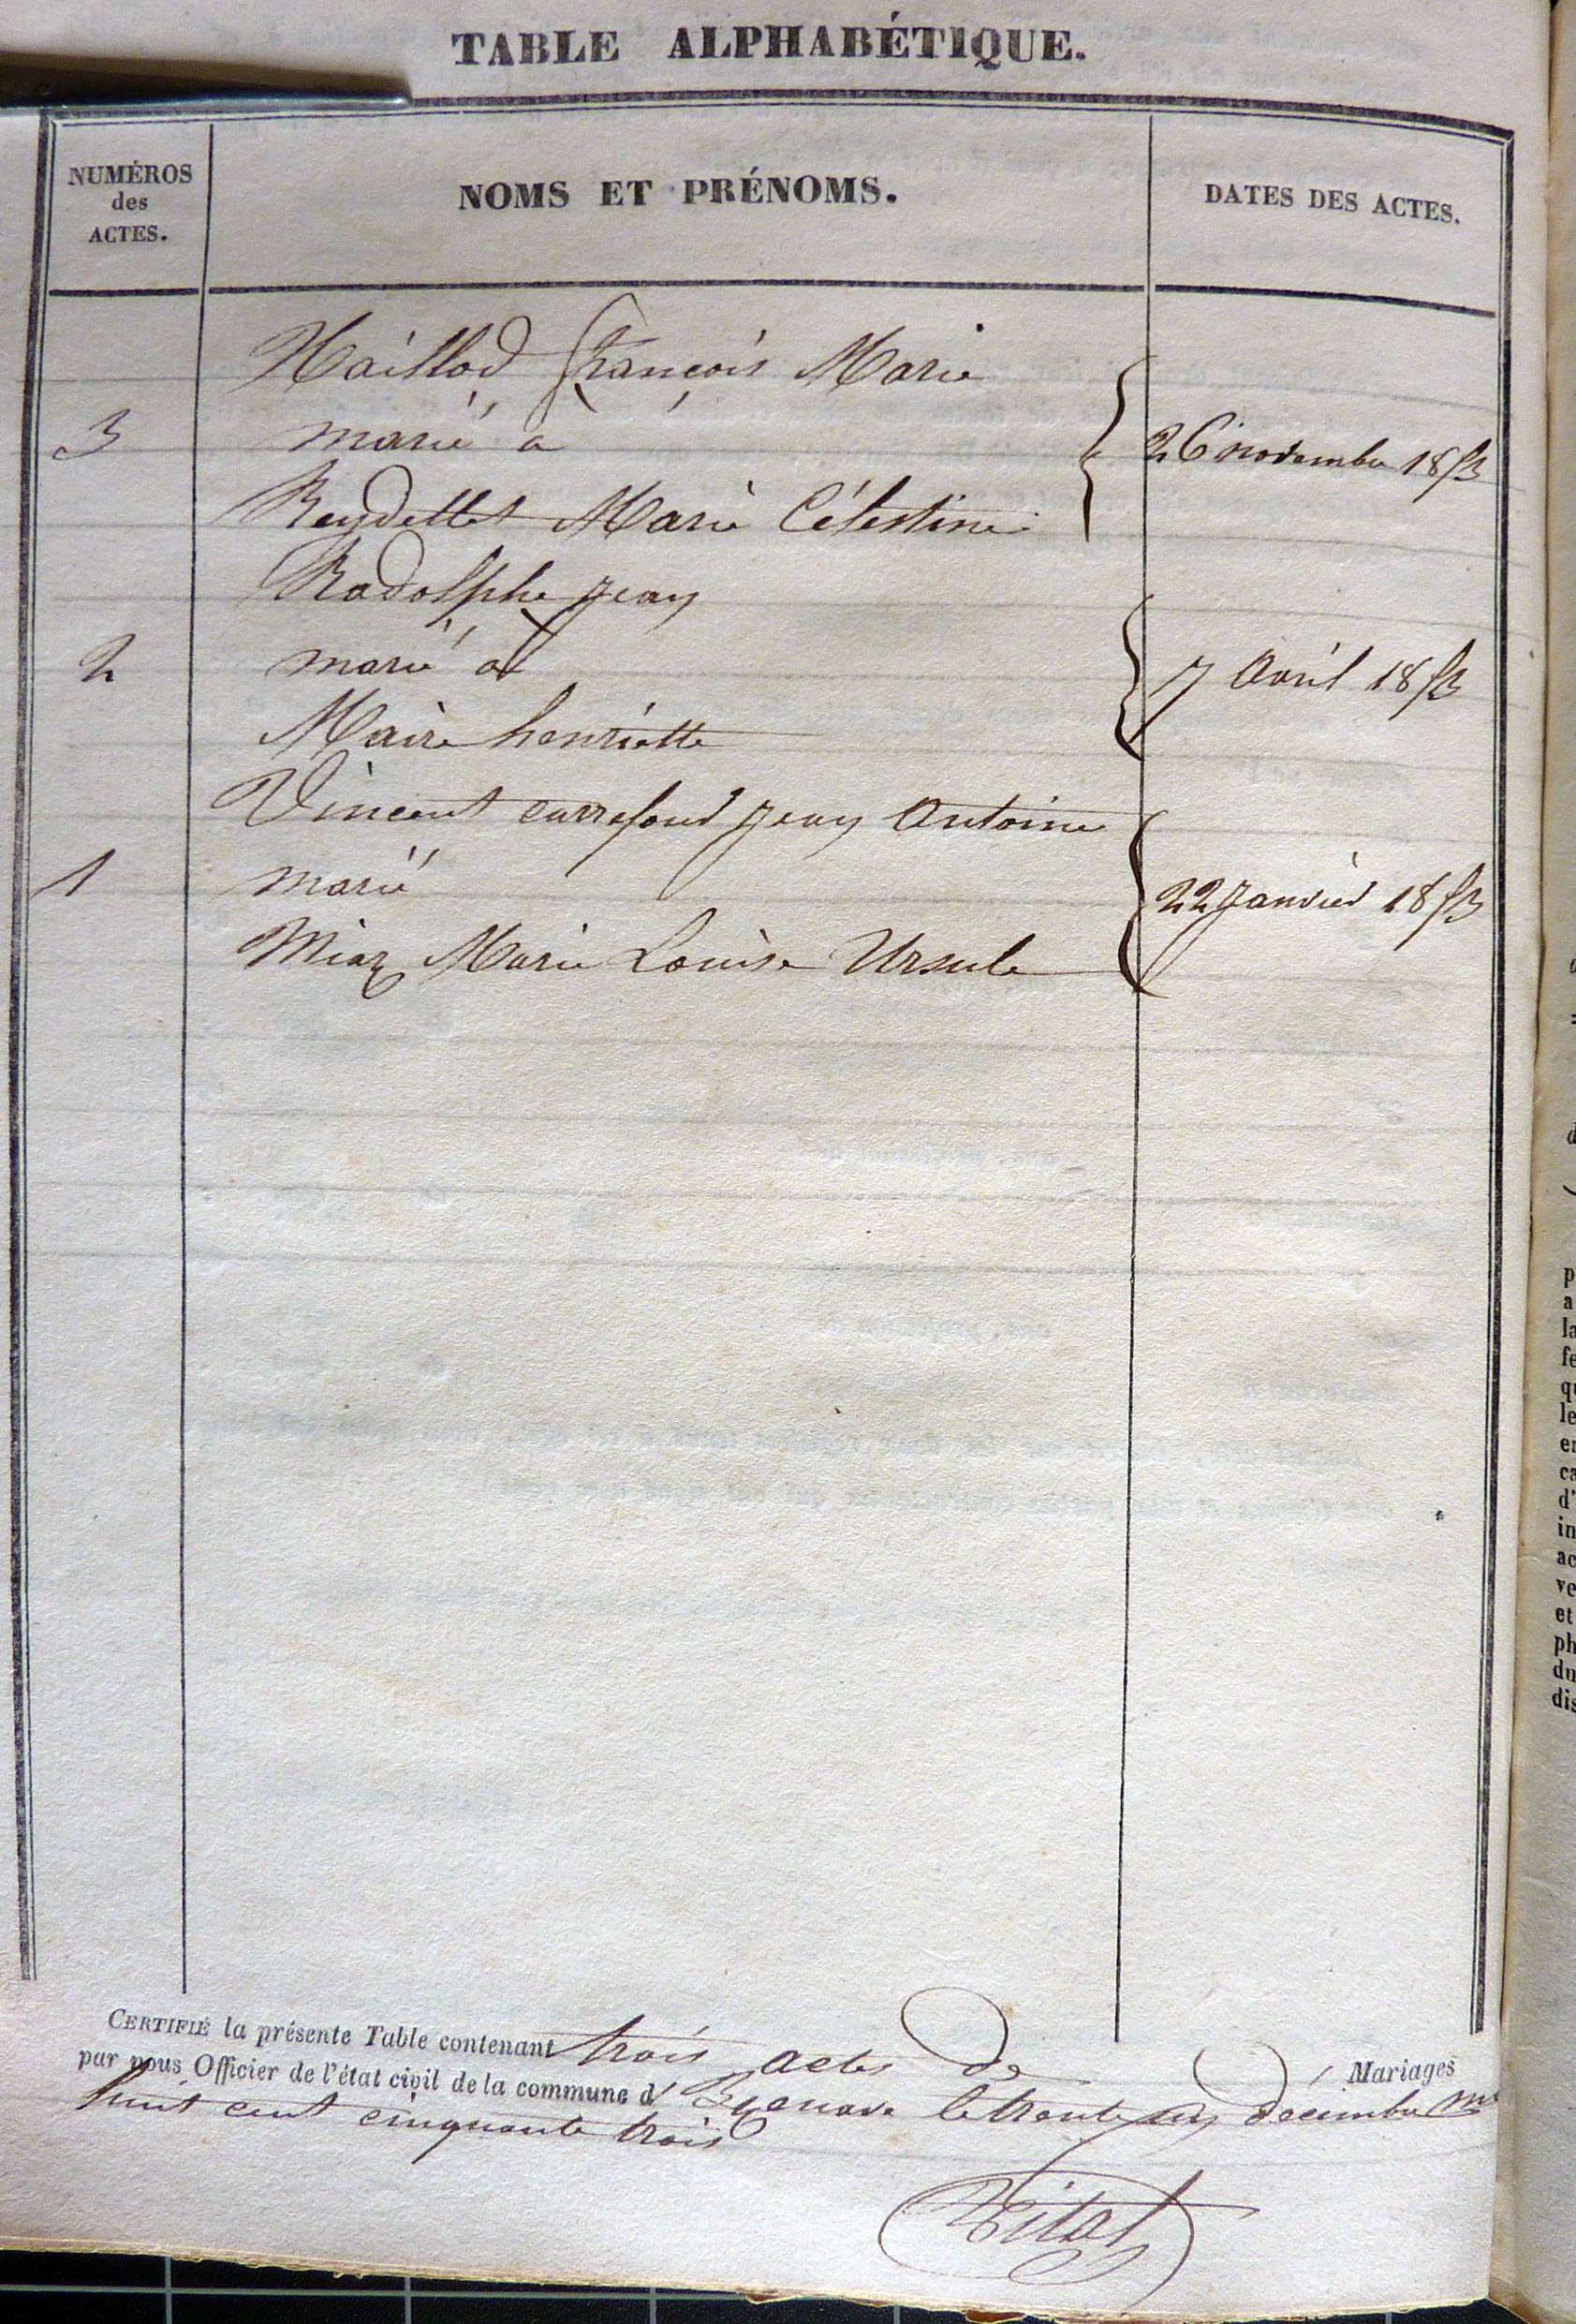 TABLE ALPHABÉTIQUE.
NUMÉROS
des
ACTES.
NOMS ET PRÉNOMS.
DATES DES ACTES.
Maillod françois Marie
3 marié à 26 novembre 1853
Reydellet Marie Célestine
Rodolphe Jean
2 marié à 7 Avril 1853
Maire henriette
Vincent carrefour Jean Antoine
1 marié 22 Janvier 1853
Miaz Marie Louise Ursule
CERTIFIÉ la présente Table contenant trois actes de Mariages
par nous Officier de l'état civil de la commune d le trente un décembre mil
huit cent cinquante trois
p
a
la
fe
qu
le
en
ca
d'
in
ac
ve
et
ph
du
dis